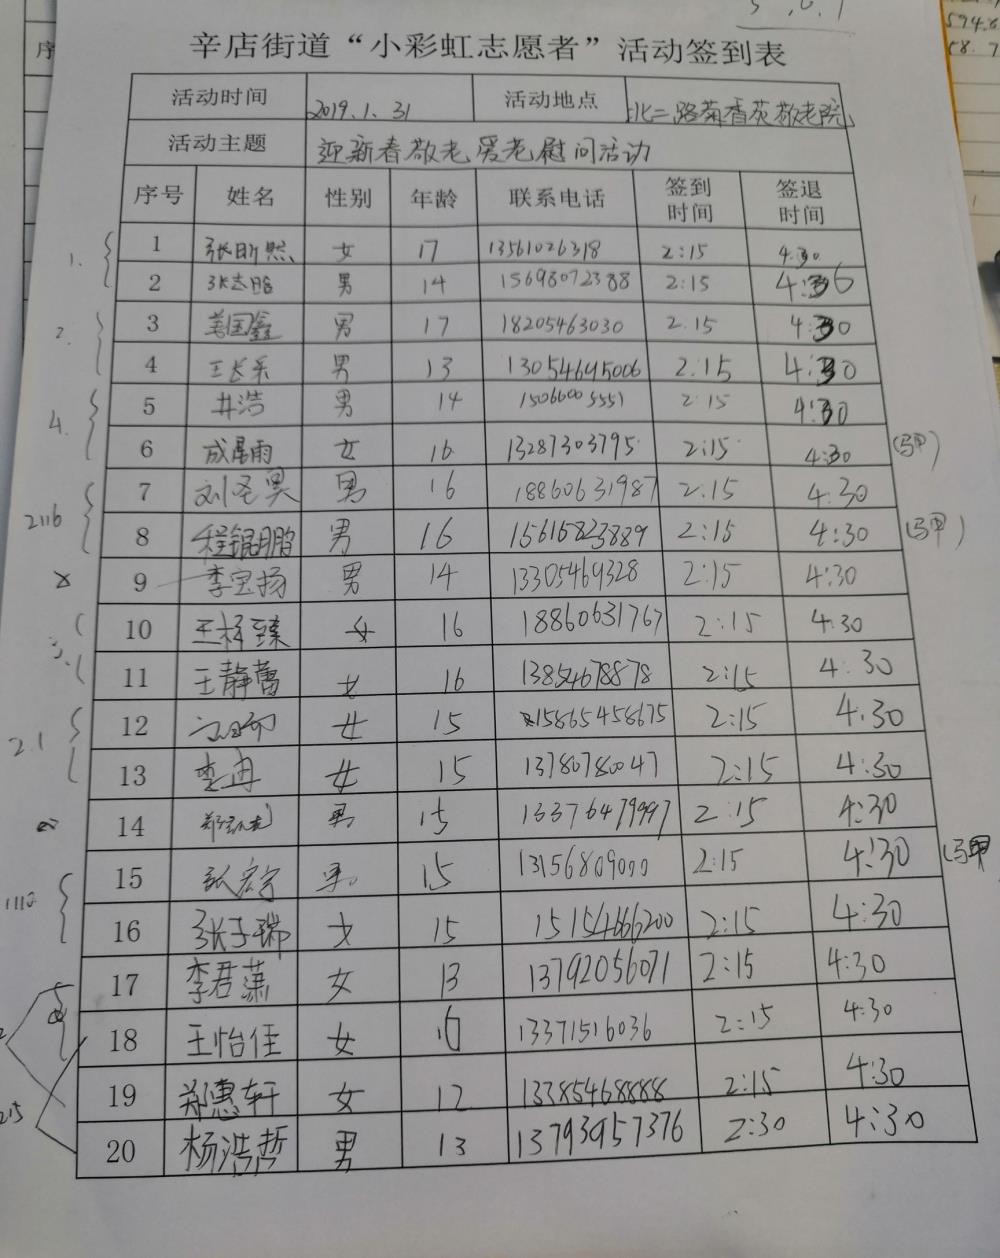 辛店街道“小彩虹志愿者”活动签到表
活动时间 2019.1.31 活动地点 北二路菊香苑敬老院
活动主题 迎新春敬老爱老慰问活动
序号 姓名 性别 年龄 联系电话 签到时间 签退时间
1. 1 张昕然 女 17 13561026318 2:15 4:30
2 张志昭 男 14 15698072388 2:15 4:36
2. 3 姜国鑫 男 17 18205463030 2:15 4:30
4 王长乐 男 13 13054695006 2:15 4:30
4. 5 井浩 男 14 15066005551 2:15 4:30
6 成晨雨 女 16 13287303795 2:15 4:30 (马甲)
2116 7 刘圣昊 男 16 18860631987 2:15 4:30
8 程锟鹏 男 16 15615823889 2:15 4:30 (马甲)
9 李宝扬 男 14 13305469328 2:15 4:30
3. 10 王梓臻 女 16 18860631767 2:15 4:30
11 王静蕾 女 16 13854678878 2:15 4:30
2.1 12 女 15 15865458675 2:15 4:30
13 李冉 女 15 13780780047 2:15 4:30
14 男 15 13376479997 2:15 4:30
15 张宏宇 男 15 13156809000 2:15 4:30 (马甲
1110 16 张子瑞 女 15 15154666200 2:15 4:30
17 李君潇 女 13 13792056071 2:15 4:30
18 王怡佳 女 10 13371516036 2:15 4:30
215 19 郑惠轩 女 12 13385468888 2:15 4:30
20 杨浩哲 男 13 13793957376 2:30 4:30